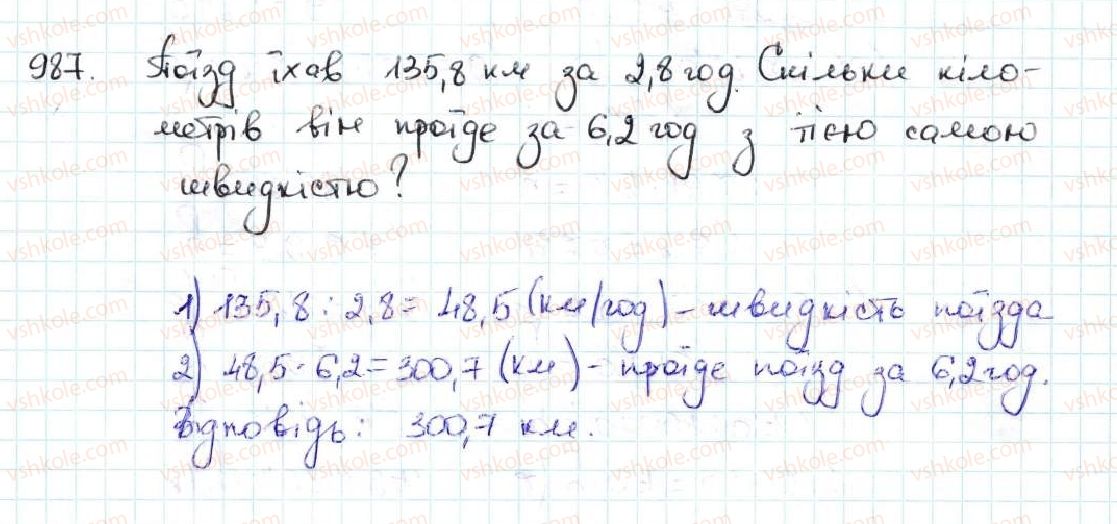 987. Поїзд їхав 135,8 км за 2,8 год. Скільки кіло-
метрів він проїде за 6,2 год з тією самою
швидкістю?
1) 135,8 : 2,8 = 48,5 (км/год) - швидкість поїзда
2) 48,5 · 6,2 = 300,7 (км) - проїде поїзд за 6,2 год.
Відповідь: 300,7 км.